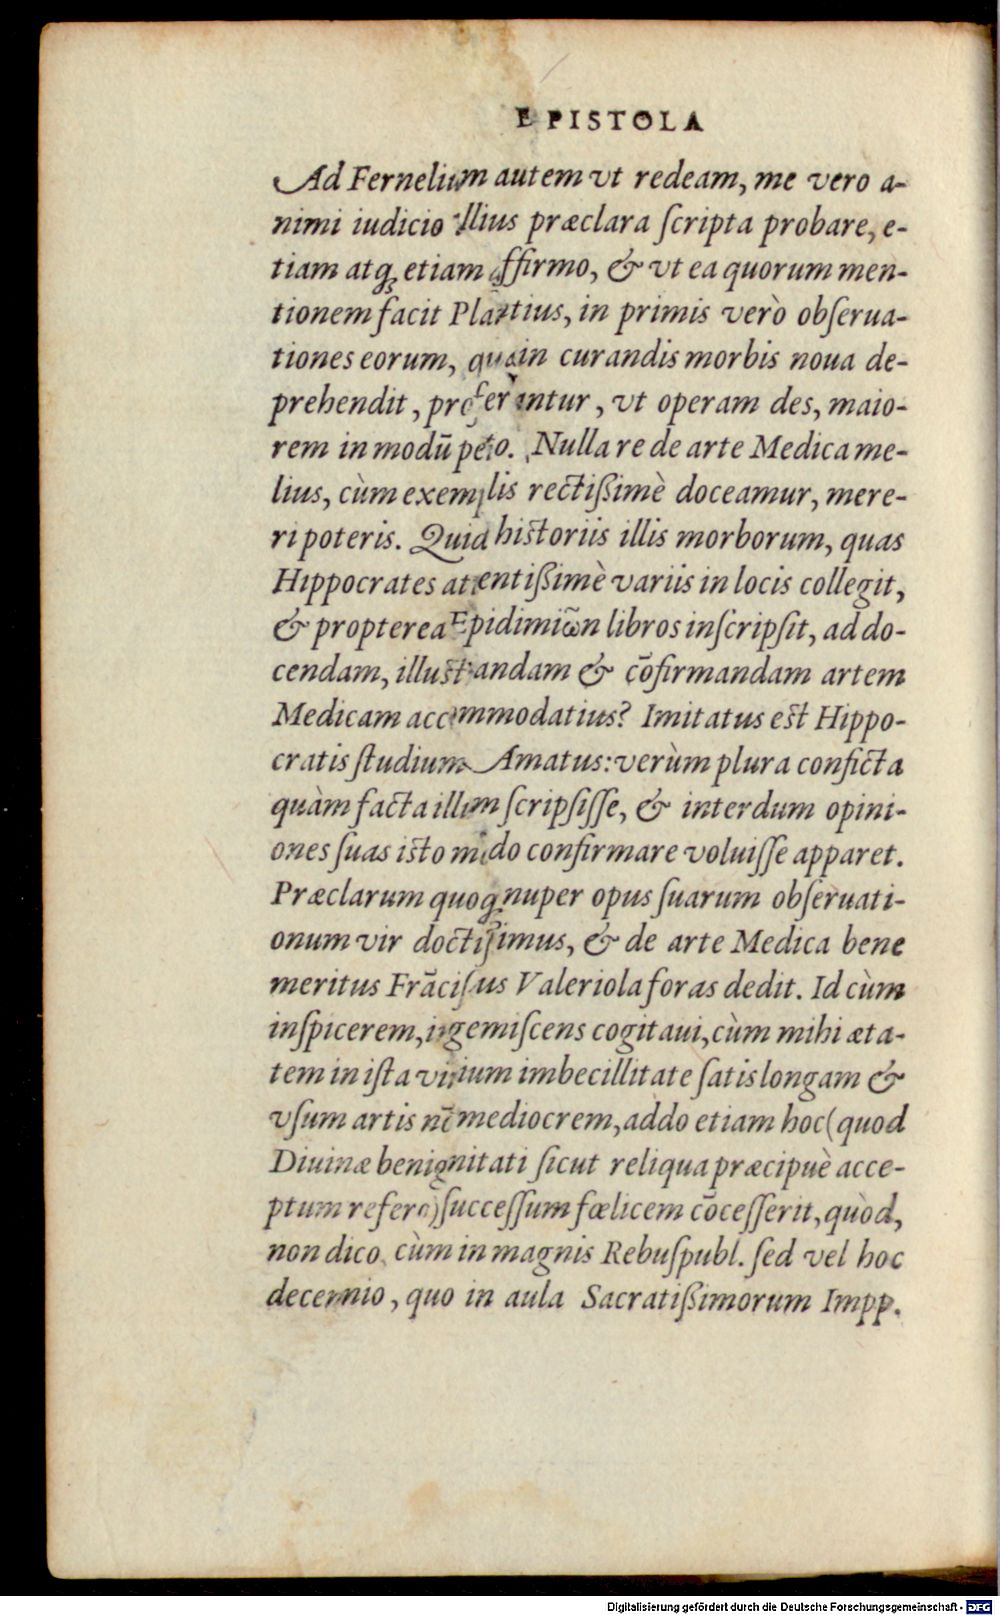 EPISTOLA
Ad Fernelium autem vt redeam, me vero a-
nimi iudicio illius præclara ſcripta probare, e-
tiam atq; etiam affirmo, & vt ea quorum men-
tionem facit Plantius, in primis verò obſerua-
tiones eorum, quæ in curandis morbis noua de-
prehendit, proferantur, vt operam des, maio-
rem in modū peto. Nulla re de arte Medica me-
lius, cùm exemplis rectißimè doceamur, mere-
ri poteris. Quid historiis illis morborum, quas
Hippocrates attentißimè variis in locis collegit,
& propterea Epidimiω̃n libros inſcripſit, ad do-
cendam, illustrandam & cōfirmandam artem
Medicam accommodatius? Imitatus est Hippo-
cratis ſtudium Amatus: verùm plura conficta
quàm facta illum ſcripſiſſe, & interdum opini-
ones ſuas isto modo confirmare voluiſſe apparet.
Præclarum quoq; nuper opus ſuarum obſeruati-
onum vir doctißimus, & de arte Medica bene
meritus Frāciſcus Valeriola foras dedit. Id cùm
inſpicerem, ingemiſcens cogitaui, cùm mihi æta-
tem in iſta virium imbecillitate ſatis longam &
vſum artis nō mediocrem, addo etiam hoc (quod
Diuinæ benignitati ſicut reliqua præcipuè acce-
ptum refero) ſucceſſum fœlicem cōceſſerit, quòd,
non dico cùm in magnis Rebuſpubl. ſed vel hoc
decennio, quo in aula Sacratißimorum Impp.
Digitalisierung gefördert durch die Deutsche Forschungsgemeinschaft - DFG